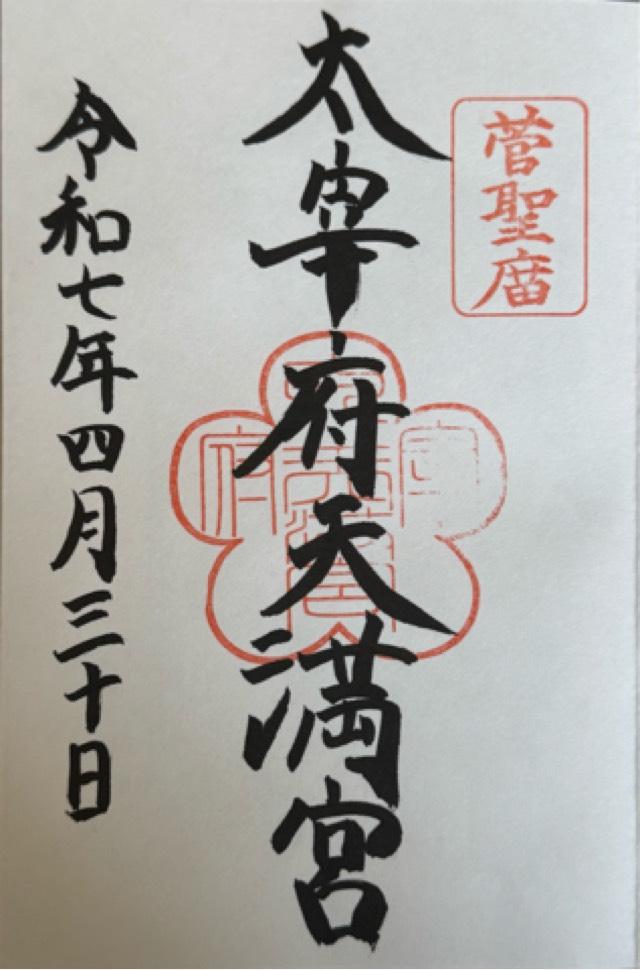 菅聖庿
太宰府天満宮
令和七年四月三十日